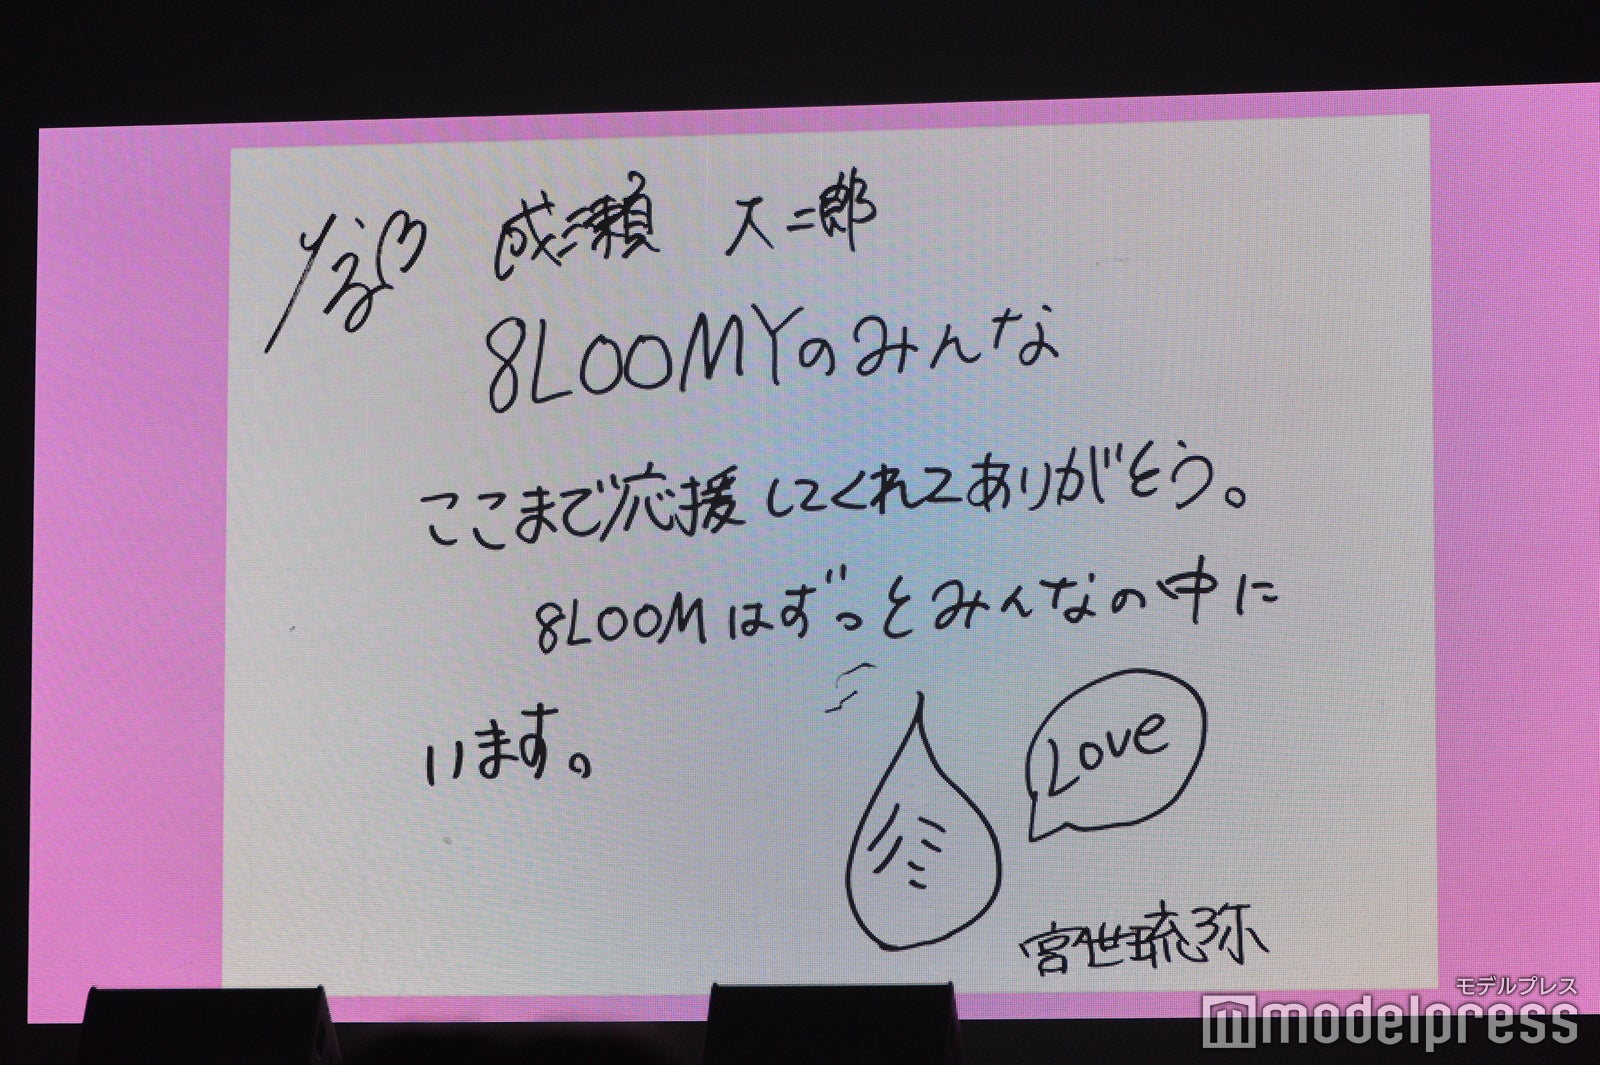 成瀬 大二郎
8LOOMYのみんな
ここまで応援してくれてありがとう。
8LOOMはずっとみんなの中に
います。
Love
宮世琉弥
モデルプレス
modelpress